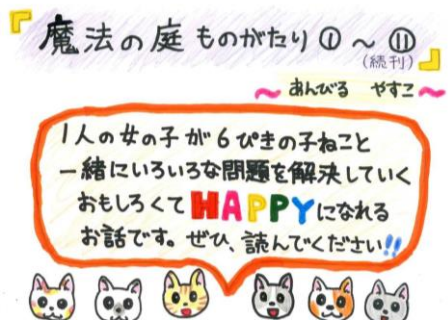 『魔法の庭ものがたり①～⑪』
(続刊)
～あんびる やすこ～
1人の女の子が6ぴきの子ねこと
一緒にいろいろな問題を解決していく
おもしろくてHAPPYになれる
お話です。ぜひ、読んでください!!